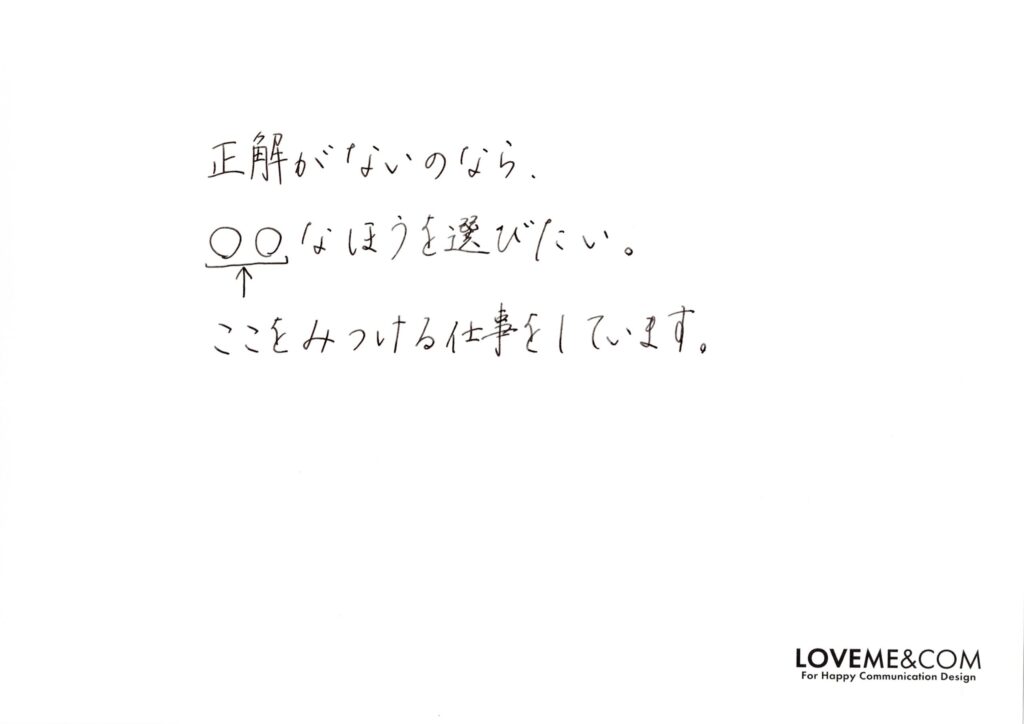 正解がないのなら、
○○なほうを選びたい。
↑
ここをみつける仕事をしています。
LOVEME&COM
For Happy Communication Design